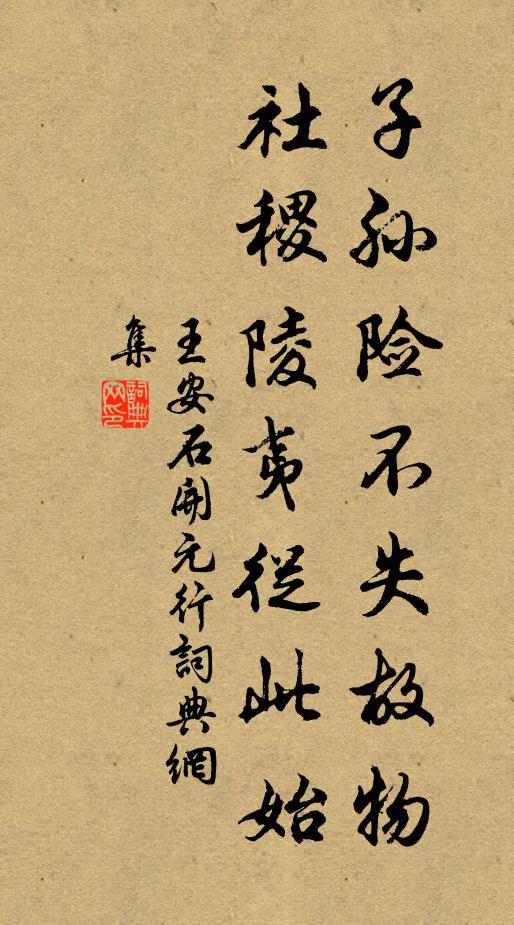 子孙险不失故物
社稷陵夷從此始
王安石開元行詞典網
集
詞典
网印